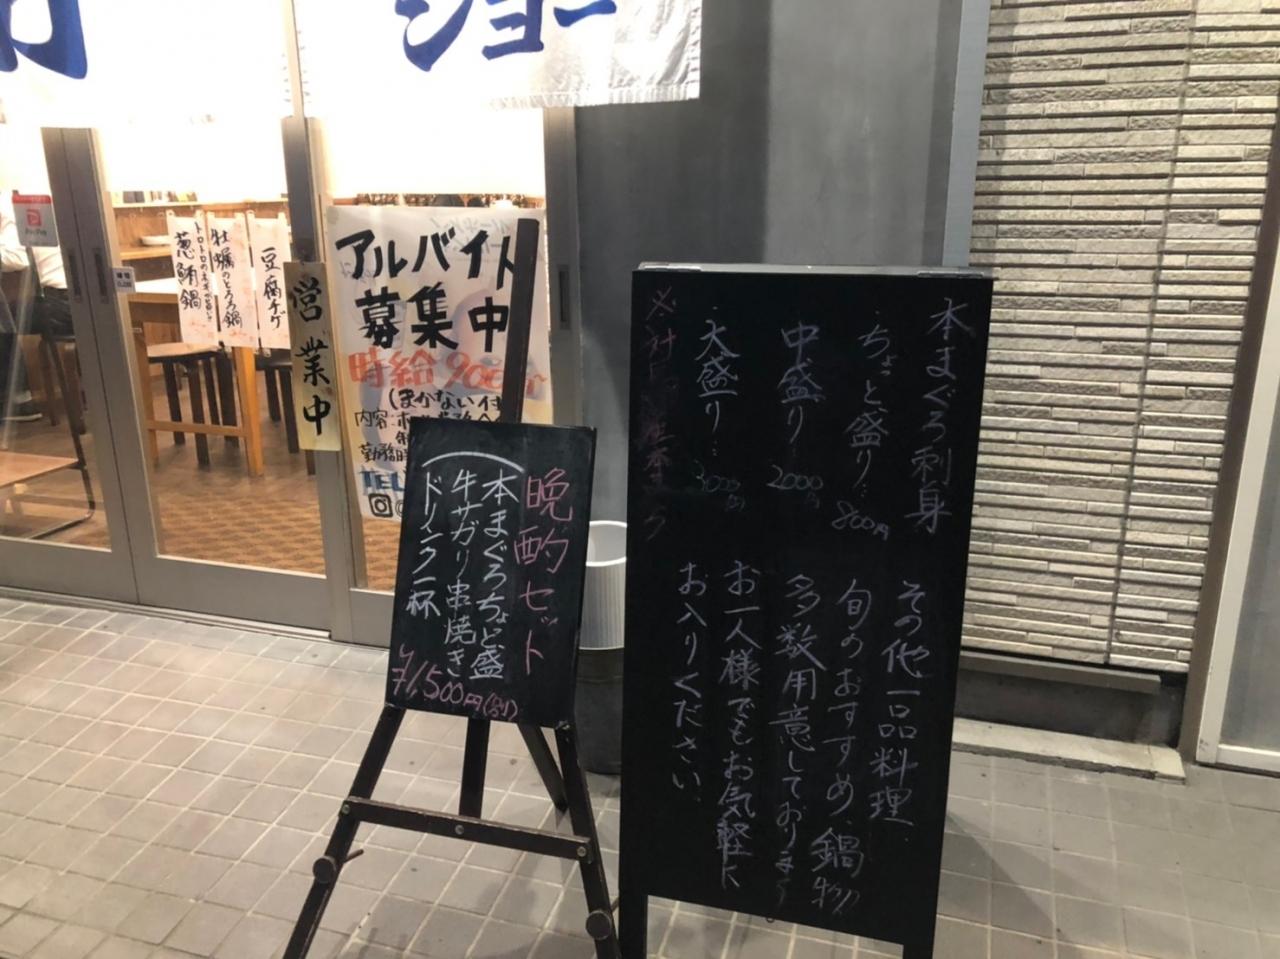 ショー
豆腐チゲ
牡蠣のとろろ鍋
トロトロのネギが旨い!!
葱鮪鍋
営業中
アルバイト
募集中
時給900円
(まかない付
内容:ホ
勤務時
TEL
晩酌セット
本まぐろちょと盛
牛サガリ串焼き
ドリンク一杯
1,500円(別)
本まぐろ刺身
ちょこと盛り… 800円
中盛り… 2000円
・大盛り… 3000円
その他一品料理.
旬のおすすめ、鍋物
多数用意しております
お一人様でもお気軽に
お入りください.